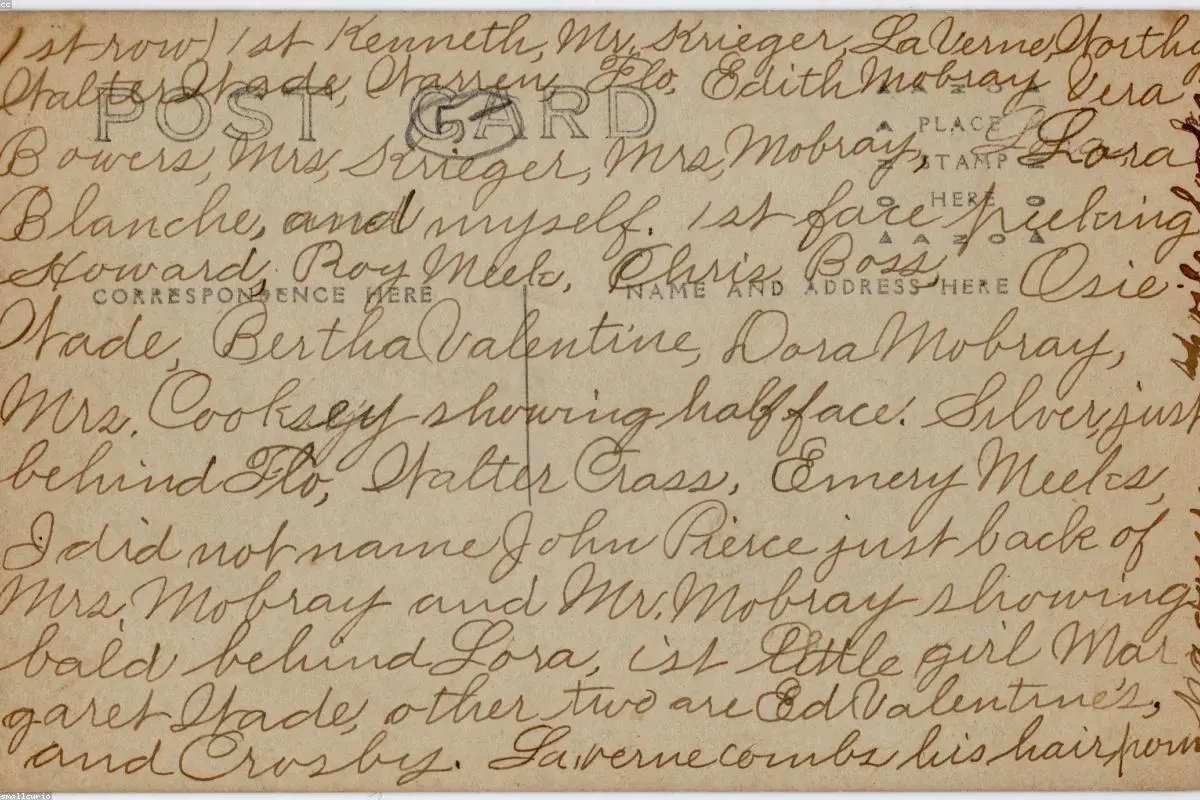 1st row) 1st Kenneth, Mr. Krieger, LaVerne, Worthy
Walter Wade, Warren, Flo, Edith Mobray Vera
POST CARD
Bowers, Mrs. Krieger, Mrs. Mobray, Lora
PLACE
STAMP
HERE
AZO
Blanche, and myself. 1st face peeking
Howard, Roy Meek, Chris Boss, Osie
CORRESPONDENCE HERE
NAME AND ADDRESS HERE
Wade, Bertha Valentine, Dora Mobray,
Mrs. Cooksey showing half face. Silver, just
behind Flo, Walter Crass, Emery Meeks,
I did not name John Pierce just back of
Mrs. Mobray and Mr. Mobray showing
bald behind Lora, 1st little girl Mar
garet Wade, other two are Ed Valentine's,
and Crosby. Laverne combs his hair pom
smallcurio